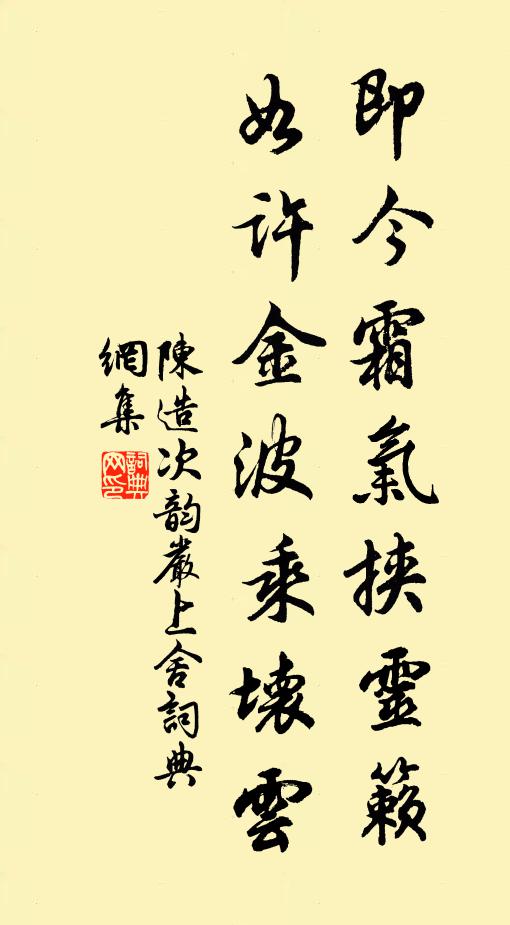 即今霜氣挾靈籟
如許金波乘壞雲
陳造次韵嚴上舍詞典
網集
詞典網印